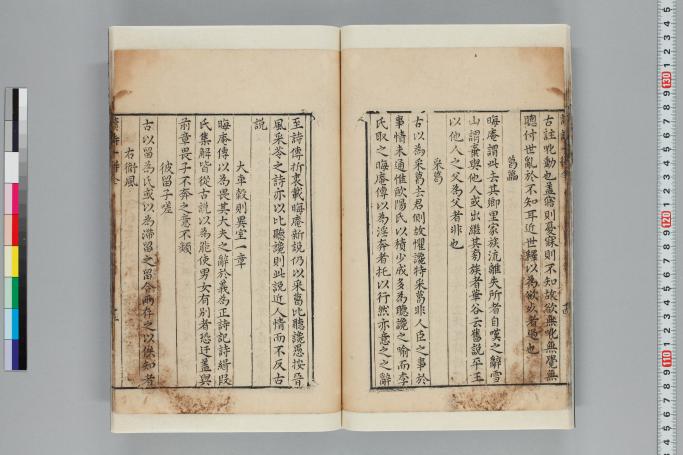 古註吪動也蓋寤則憂寐則不知故欲無吪無覺無
聰付世亂於不知耳近世釋以為欲死者過也
葛藟
晦庵謂此去其鄉里家族流離失所者自嘆之辭雪
山謂棄與他人或出繼其旁族者華谷云舊說平王
以他人之父為父者非也
采葛
古以為采葛士君側故懼讒特采葛非人臣之事於
事情未通惟歐陽氏以積少成多為聽讒之喻而李
氏取之晦庵傳以為淫奔者托以行然亦意之之辭
至詩傳折衷載晦庵新說仍以采葛比聽讒愚按晉
風采苓之詩亦以比聽讒則此說近人情而不反古
說
大車 穀則異室一章
晦庵傳以為畏其大夫之辭於義為正詩記詩緝段
氏集解皆從古說以為能使男女有別者恐迂蓋與
前章畏子不奔之意不類
彼留子嗟
古以留為氏或以為滯留之留今兩存之以俟知者
右衛風